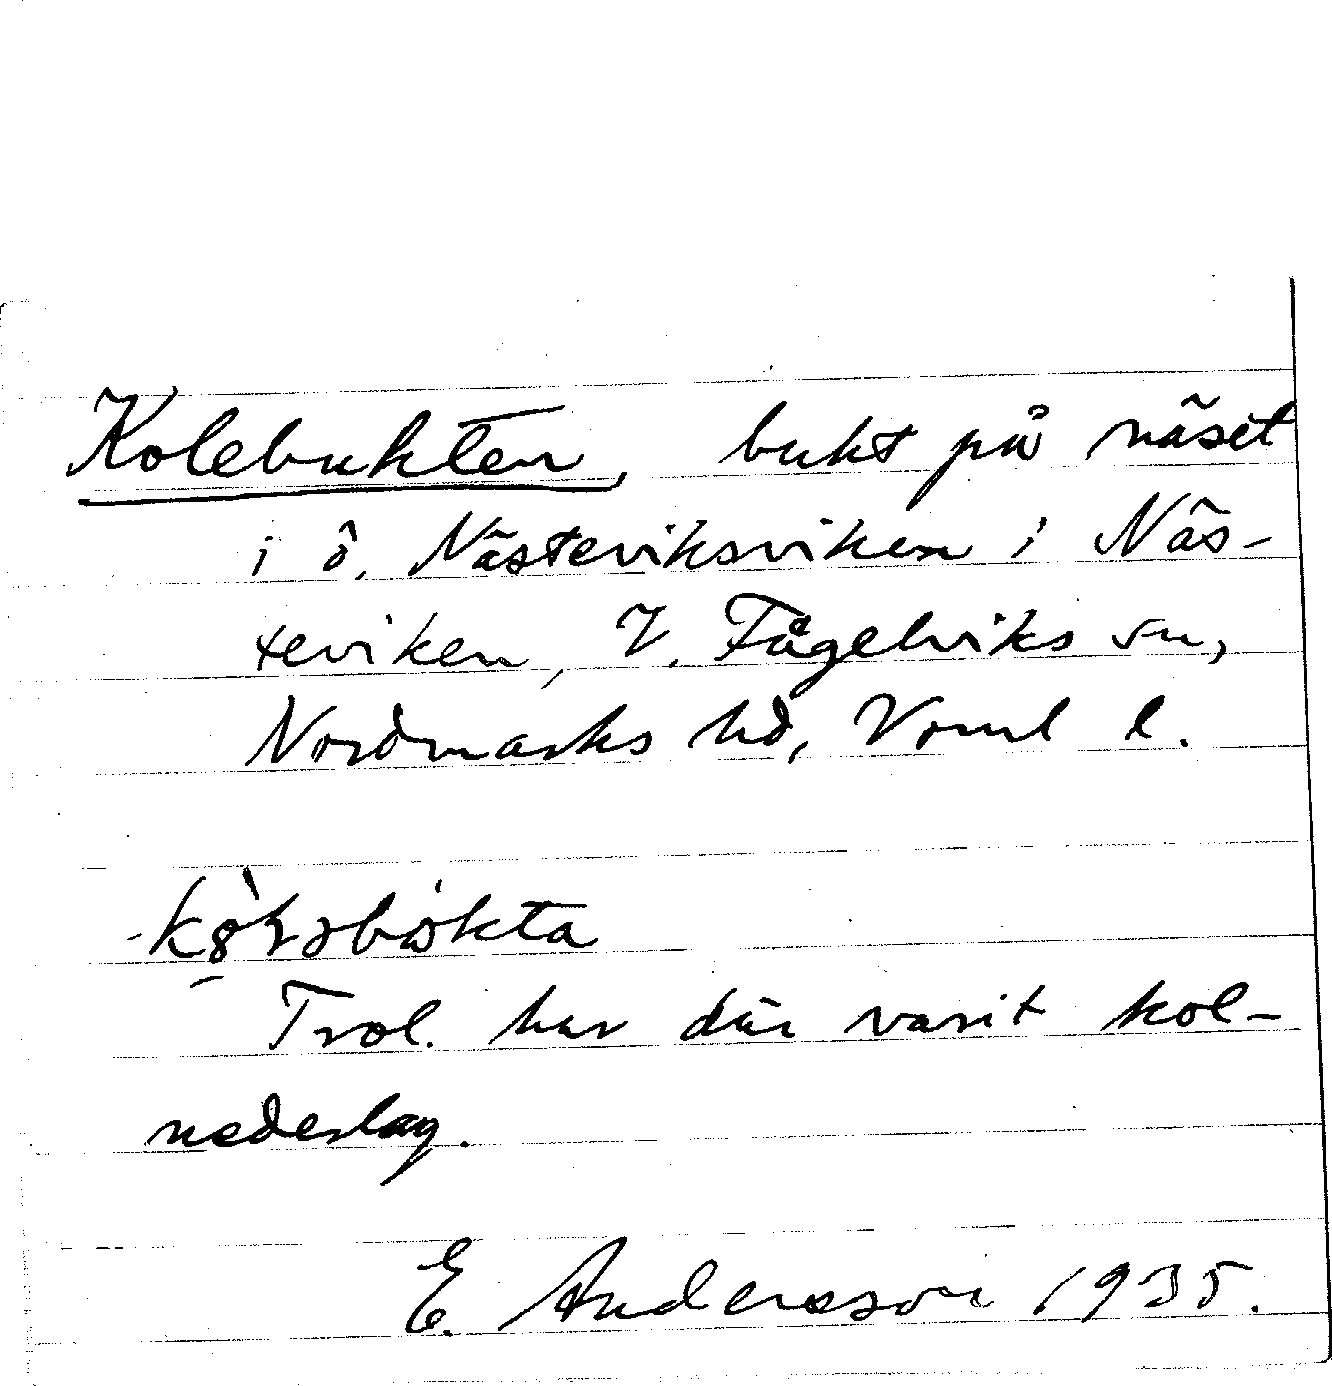 Kolebukten, bukt på näset
i ö. Nästeviksviken i Näs-
teviken, V. Fågelviks sn,
Nordmarks hd, Vrml l.
Trol. har där varit kol-
nederlag.
E. Andersson 1935.